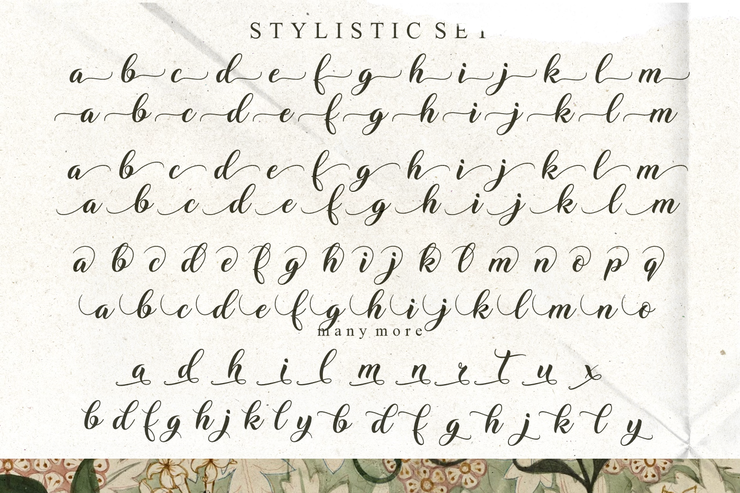 STYLISTIC SET
a b c d e f g h i j k l m
a b c d e f g h i j k l m
a b c d e f g h i j k l m
a b c d e f g h i j k l m
a b c d e f g h i j k l m n o p q
a b c d e f g h i j k l m n o
many more
a d h i l m n r t u x
b d f g h j k l y b d f g h j k l y